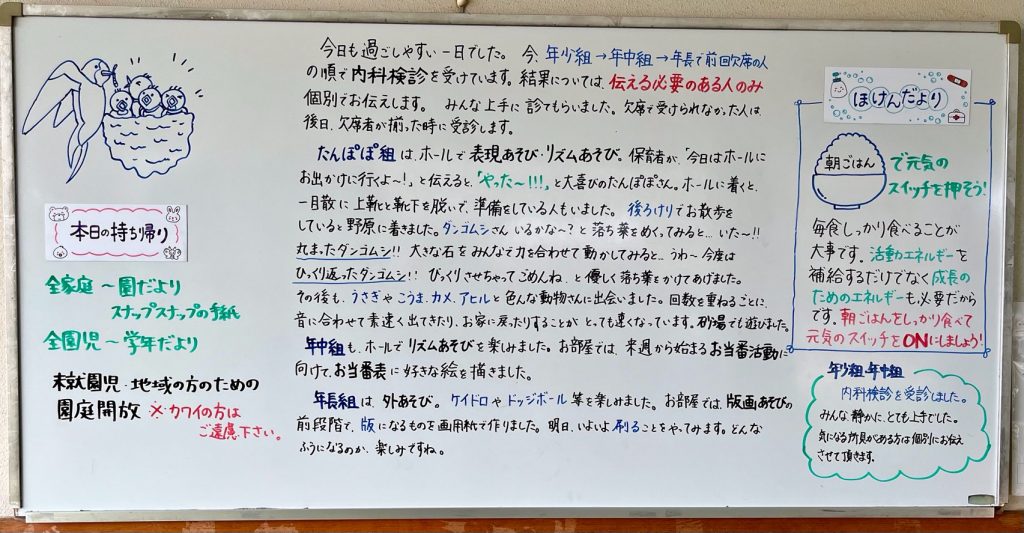 本日の持ち帰り
全家庭～園だより
スナップスナップの手紙
全園児～学年だより
未就園児・地域の方のための
園庭開放 ※カワイの方は
ご遠慮下さい。
今日も過ごしやすい一日でした。 今、年少組→年中組→年長で前回欠席の人
の順で内科検診を受けています。結果については、伝える必要のある人のみ
個別でお伝えします。 みんな上手に診てもらいました。欠席で受けられなかった人は
後日、欠席者が揃った時に受診します。
たんぽぽ組は、ホールで表現あそび・リズムあそび。保育者が、「今日はホールに
お出かけに行くよ～!」と伝えると、「やった～!!!」と大喜びのたんぽぽさん。ホールに着くと、
一目散に上靴と靴下を脱いで、準備をしている人もいました。 後ろけりでお散歩を
していると野原に着きました。ダンゴムシさんいるかな～?と落ち葉をめくってみると…いた～!!
丸まったダンゴムシ!! 大きな石をみんなで力を合わせて動かしてみると…うわ～今度は
ひっくり返ったダンゴムシ!! びっくりさせちゃってごめんね、と優しく落ち葉をかけてあげました。
その後も、うさぎやこうま、カメ、アヒルと色んな動物さんに出会いました。回数を重ねるごとに、
音に合わせて素速く出てきたり、お家に戻ったりすることがとっても速くなっています。砂場でも遊びました。
年中組も、ホールでリズムあそびを楽しみました。お部屋では、来週から始まるお当番活動に
向けて、お当番表に好きな絵を描きました。
年長組は、外あそび。 ケイドロやドッジボール等を楽しみました。お部屋では、版画あそびの
前段階で、版になるものを画用紙で作りました。明日、いよいよ刷ることをやってみます。どんな
ふうになるのか、楽しみですね。
ほけんだより
朝ごはん で元気の
スイッチを押そう!
毎食しっかり食べることが
大事です。活動エネルギーを
補給するだけでなく成長の
ためのエネルギーも必要だから
です。朝ごはんをしっかり食べて
元気のスイッチをONにしましょう!
年少組・年中組
内科検診を受診しました。
みんな、静かに、とても上手でした。
気になる所見がある方は個別にお伝え
させて頂きます。